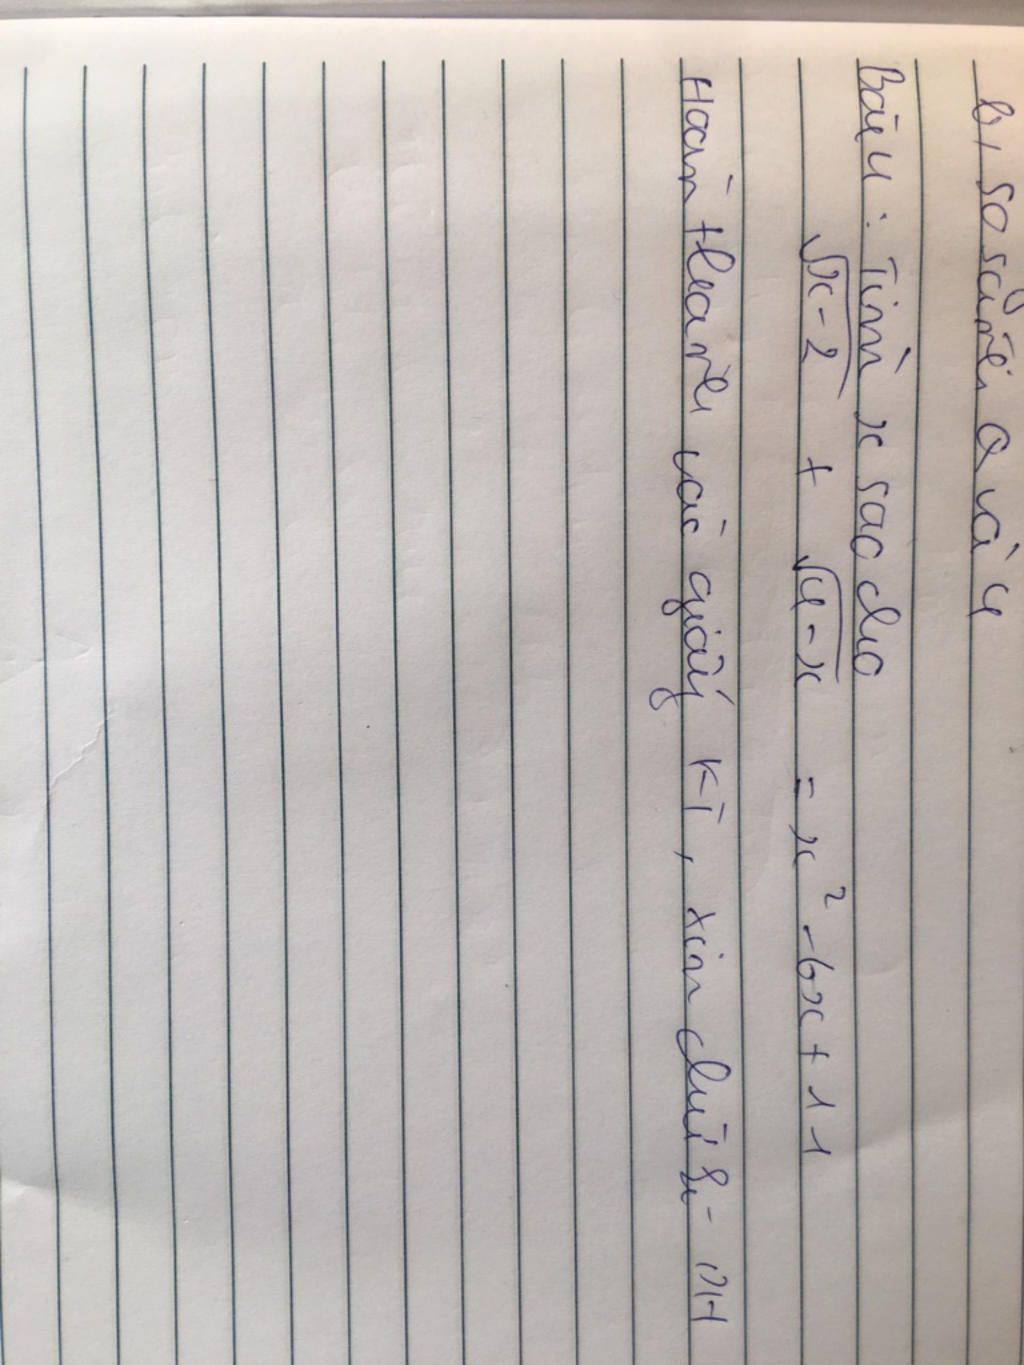 b, So sánh Q và 4
Bài 4: Tìm x sao cho
√x-2 + √4-x = x² - 6x + 11
Hoàn thành vào giấy KT, xin chữ kí PH